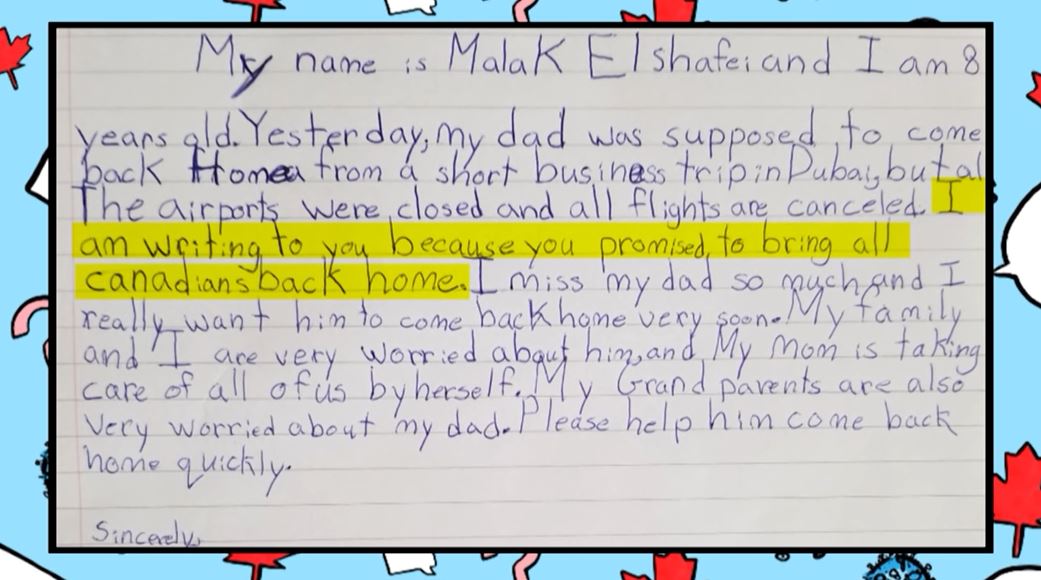 My name is Malak Elshafei and I am 8
years old. Yesterday, my dad was supposed to come
back Home from a short business trip in Dubai, but al
The airports were closed and all flights are canceled. I
am writing to you because you promised to bring all
canadians back home. I miss my dad so much, and I
really want him to come back home very soon. My family
and I are very worried about him, and My mom is taking
care of all of us by herself. My Grand parents are also
very worried about my dad. Please help him come back
home quickly.
Sincerely,